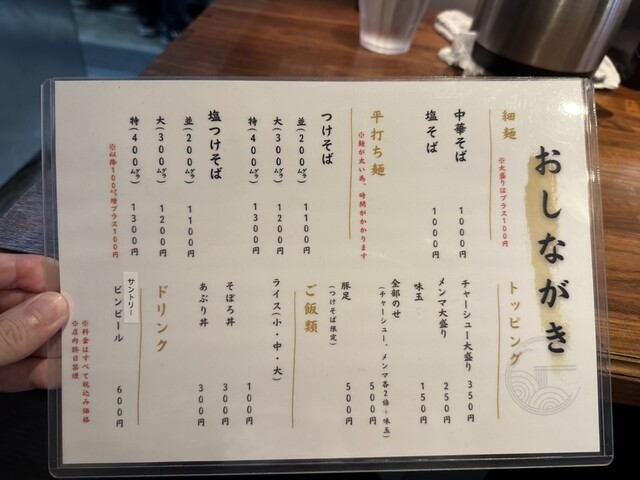 おしながき
細麺
※大盛りはプラス100円
中華そば 1000円
塩そば 1000円
平打ち麺
※麺が太い為、時間がかかります
つけそば
並(200グラム) 1100円
大(300グラム) 1200円
特(400グラム) 1300円
塩つけそば
並(200グラム) 1100円
大(300グラム) 1200円
特(400グラム) 1300円
※以降100グラム増プラス100円
トッピング
チャーシュー大盛り 350円
メンマ大盛り 250円
味玉 150円
全部のせ 500円
(チャーシュー、メンマ各2倍+味玉)
豚足 500円
(つけそば限定)
ご飯類
ライス(小・中・大) 100円
そぼろ丼 300円
あぶり丼 300円
ドリンク
サントリー
ビンビール 600円
※料金はすべて税込み価格
※店内終日禁煙